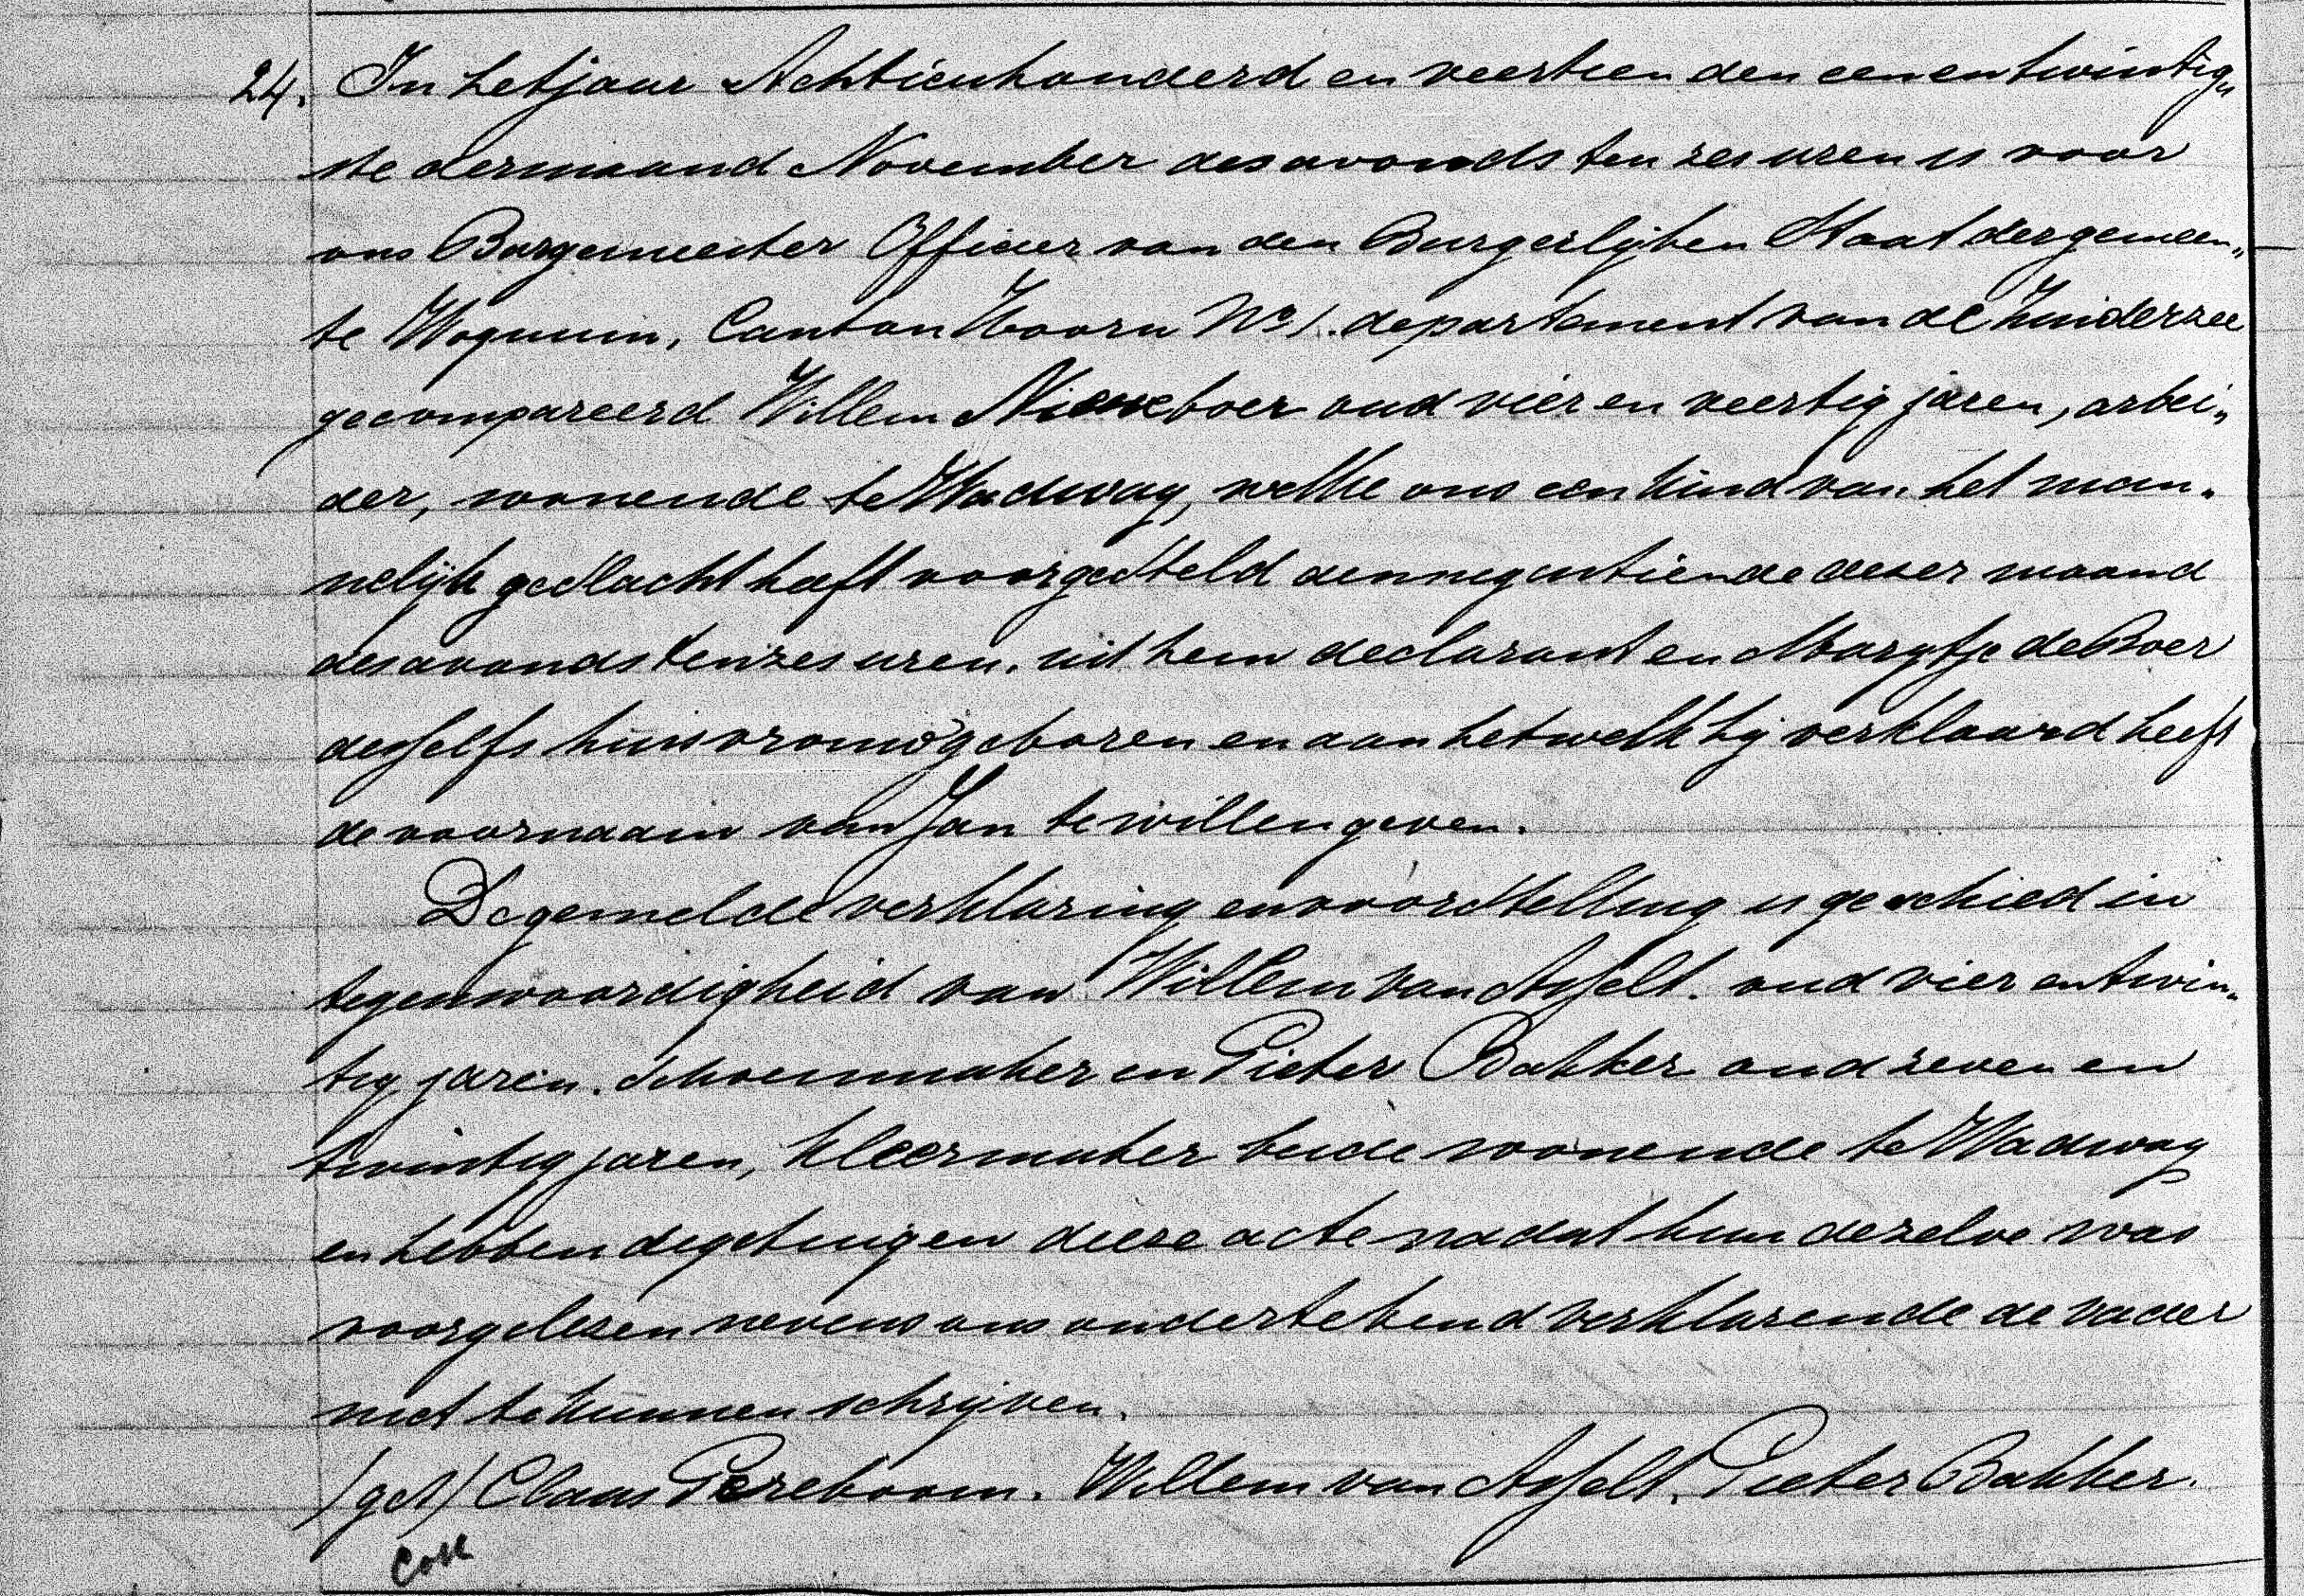 24. In het jaar Achtienhonderd en veertien den eenentwintig„
ste der maand November des avonds ten zes uren is voor
ons Burgemeester Officier van den Burgerlijken Staat der gemeen„
te Wognum, Canton Hoorn No 1. departement van de Zuiderzee
gecompareerd Willem Nieuweboer oud vier en veertig jaren, arbei„
der, wonende te Wadway, welke ons een kind van het man„
nelijk geslacht heeft voorgesteld den negentiende dezer maand
des avonds ten zes uren. uit hem declarant en Margtje de Boer
desselfs huisvrouw geboren en aan hetwelk hij verklaard heeft
de voornaam van Jan te willen geven.
De gemelde verklaring en voorstelling is geschied in
tegenwoordigheid van Willem van Asselt. oud vier en twin„
tig jaren. Schoenmaker en Pieter Bakker oud zeven en
twintig jaren, kleermaker beide wonende te Wadway
en hebben de getuigen deeze acte nadat hun dezelve was
voorgelezen nevens ons ondertekend verklarende de vader
niet te kunnen schrijven.
/get/ Claas Peereboom. Willem van Asselt. Pieter Bakker.